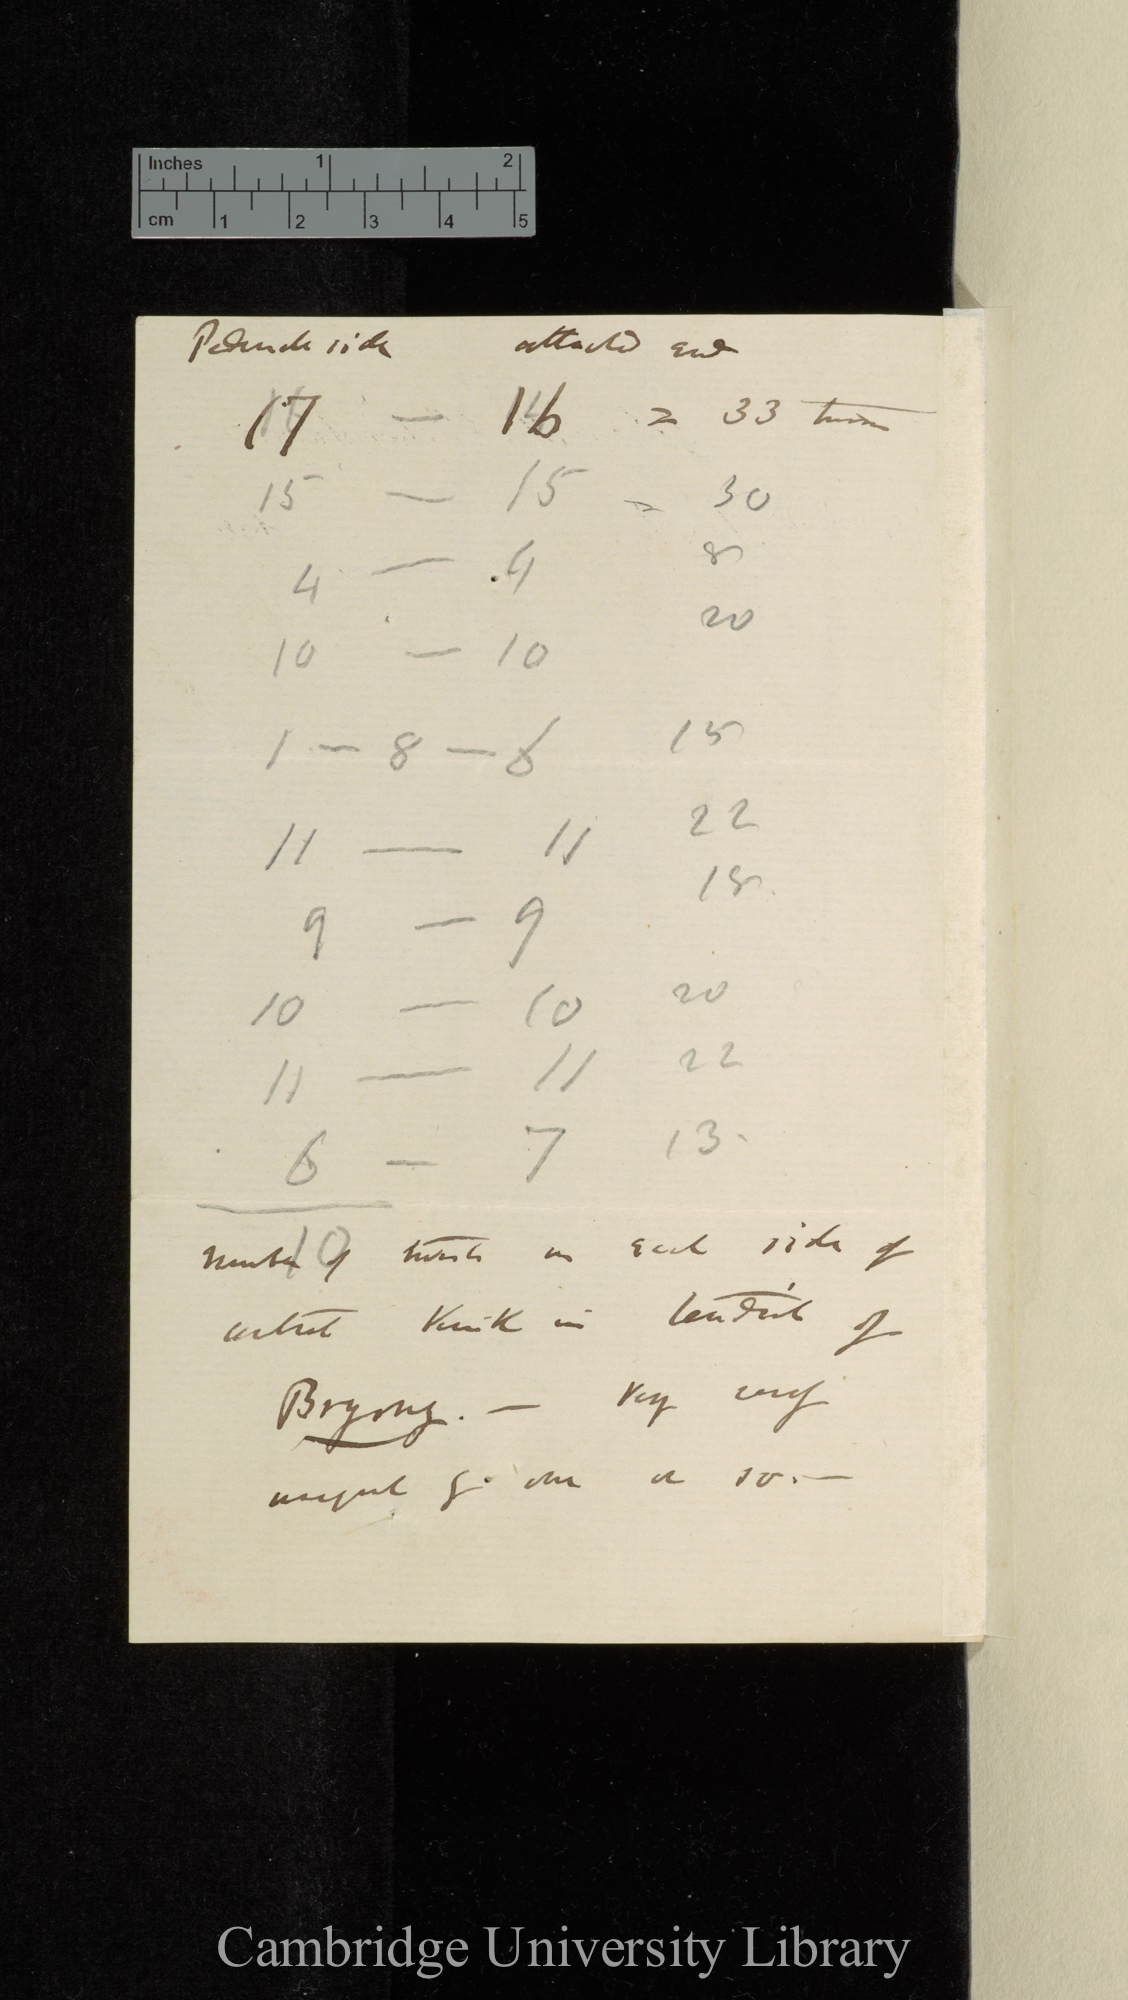 Inches 1 2
cm 1 2 3 4 5
Peduncle side attached end
17 — 16 = 33 turns
15 — 15 = 30
4 — 4 8
10 — 10 20
1 — 8 — 6 15
11 — 11 22
9 — 9 18
10 — 10 20
11 — 11 22
6 — 7 13.
10
Number of twists on each side of
central kink in tendril of
Bryony. — very
unequal or so. —
Cambridge University Library